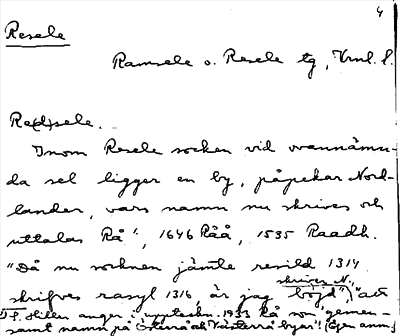 4
Resele
Ramsele o. Resele tg, Vrnl. l.
Re(d)sele.
Inom Resele socken vid ovannämn-
da sel ligger en by, påpekar Nord-
lander, vars namn nu skrives och
uttalas Rå", 1646 Råå, 1535 Raadh.
"Då nu socknen jämte resild 1314
skrives N.,
skrifves rasyl 1316, är jag böjd", att
1) F. Hillen anger i uppteckn. 1933 Rå som gemen-
samt namn på Östra och Västerrå byar"! (Egen anm.)